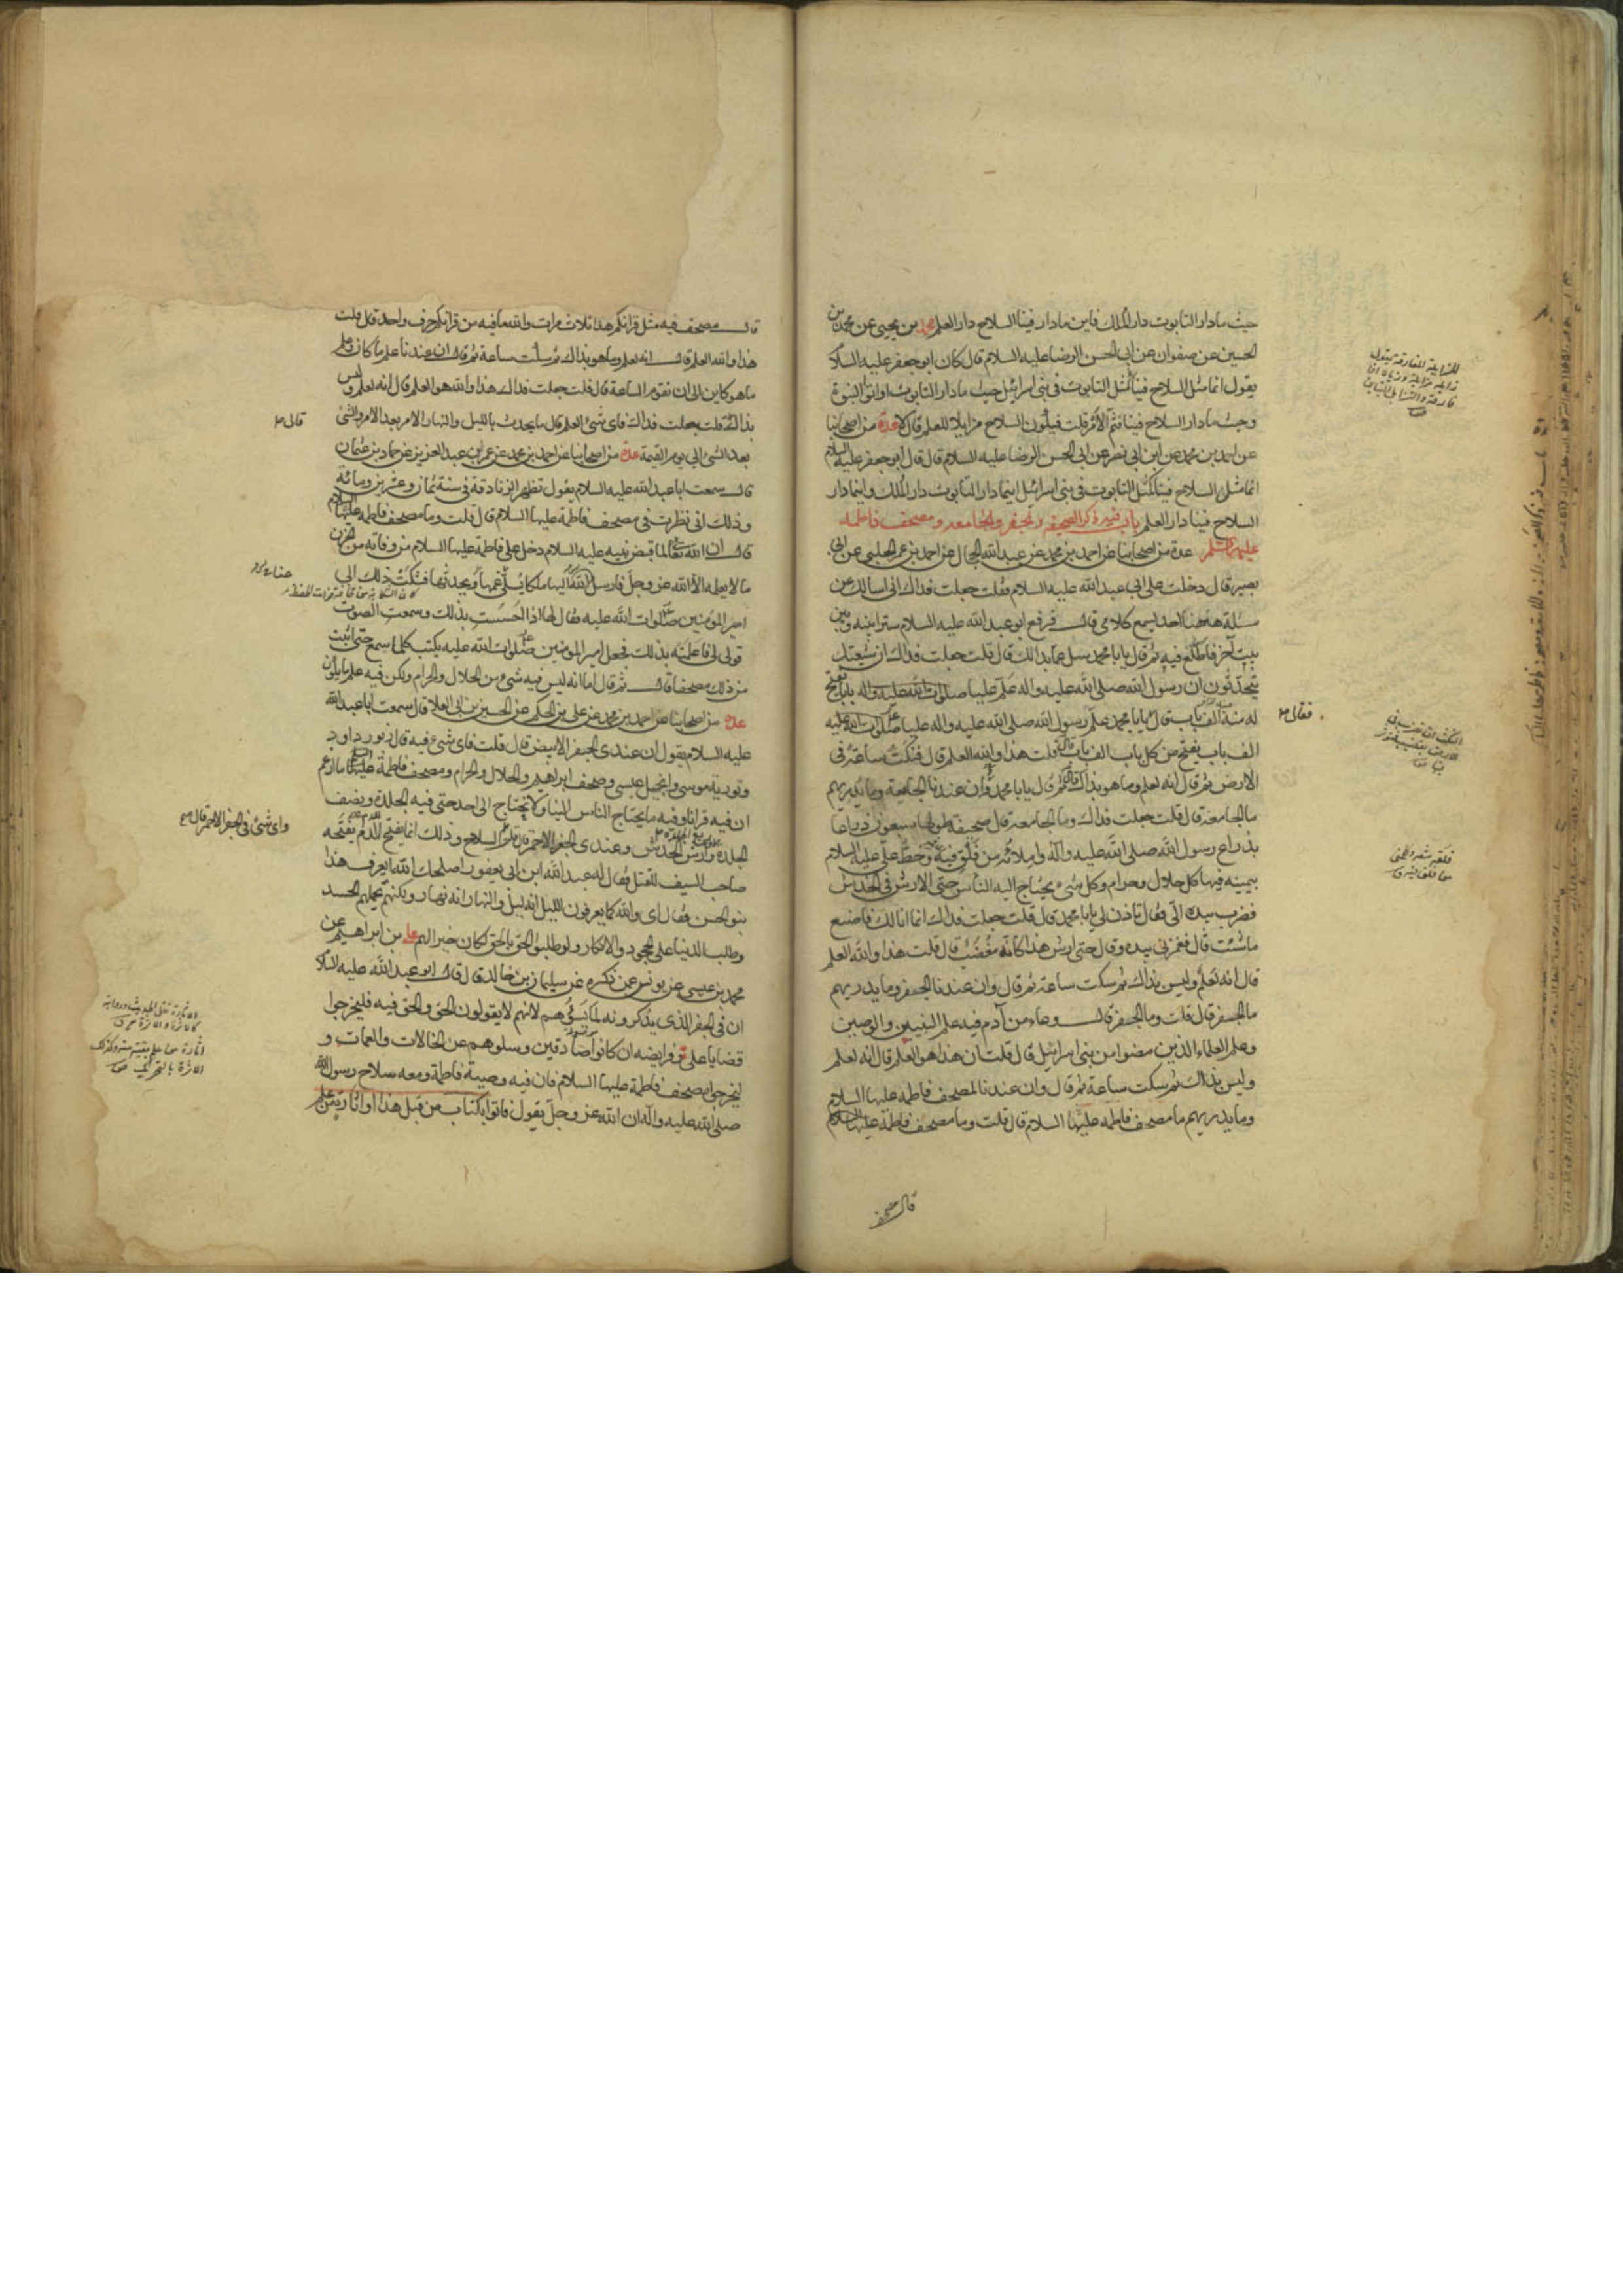 حيث ما دار التابوت دار الملك فاين ما دار فينا السلاح دار العلم محمد بن يحيى عن محمد بن
الحسين عن صفوان عن ابى الحسن الرضا عليه السلام قال كان ابو جعفر عليه السلا
يقول انما مثل السلاح فينا مثل التابوت فى بنى اسرائيل حيث ما دار التابوت اوتوا النبوة
وحيث ما دار السلاح فينا فثم الامر قلت فيكون السلاح مزايلا للعلم قال لا عدة من اصحابنا
عن احمد بن محمد عن ابن ابى نصر عن ابى الحسن الرضا عليه السلام قال قال ابو جعفر عليه السلام
انما مثل السلاح فينا كمثل التابوت فى بنى اسرائيل اينما دار التابوت دار الملك واينما دار
السلاح فينا دار العلم باب فيه ذكر الصحيفة والجفر والجامعه ومصحف فاطمه
عليها السلم عدة من اصحابنا عن احمد بن محمد عن عبد الله الحجال عن احمد بن عمر الحلبى عن ابى
بصير قال دخلت على ابى عبد الله عليه السلام فقلت جعلت فداك انى اسالك عن
مسئلة ههنا احد يسمع كلامى قال فرفع ابو عبد الله عليه السلام سترا بينه وبين
بيت آخر فاطلع فيه ثم قال يا با محمد سل عما بدا لك قال قلت جعلت فداك ان شيعتك
يتحدثون ان رسول الله صلى الله عليه واله علم عليا صلوات الله عليه واله بابا يفتح
له منه الف باب قال يا با محمد علم رسول الله صلى الله عليه واله عليا صلوات الله عليه
فقال
الف باب يفتح من كل باب الف باب قال قلت هذا والله العلم قال فنكت ساعة فى
الارض ثم قال انه لعلم وما هو بذاك قال ثم قال يا با محمد وان عندنا الجامعة وما يدريهم
ما الجامعة قال قلت جعلت فداك وما الجامعة قال صحيفة طولها سبعون ذراعا
بذراع رسول الله صلى الله عليه وآله واملائه من فلق فيه وخط على عليه السلام
بيمينه فيها كل حلال وحرام وكل شىء يحتاج اليه الناس حتى الارش فى الخدش
فضرب بيده الى فقال تاذن لى يا با محمد قال قلت جعلت فداك انما انا لك فاصنع
ما شئت قال فغمزنى بيده وقال حتى ارش هذا كانه مغضب قال قلت هذا والله العلم
قال انه لعلم وليس بذاك ثم سكت ساعة ثم قال وان عندنا الجفر وما يدريهم
ما الجفر قال قلت وما الجفر قال وعاء من آدم فيه علم النبيين والوصيين
وعلم العلماء الذين مضوا من بنى اسرائيل قال قلت ان هذا هو العلم قال انه لعلم
وليس بذاك ثم سكت ساعة ثم قال وان عندنا لمصحف فاطمه عليها السلام
وما يدريهم ما مصحف فاطمه عليها السلام قال قلت وما مصحف فاطمة عليها السلام
قال مصحف
قال مصحف فيه مثل قرانكم هذا ثلاث مرات والله ما فيه من قرانكم حرف واحد قال قلت
هذا والله العلم قال انه لعلم وما هو بذاك ثم سكت ساعة ثم قال ان عندنا علم ما كان وعلم
ما هو كاين الى ان تقوم الساعة قال قلت جعلت فداك هذا والله هو العلم قال انه لعلم وليس
بذاك قلت جعلت فداك فاى شىء العلم قال ما يحدث بالليل والنهار الامر بعد الامر والشىء
قال
بعد الشىء الى يوم القيمة عدة من اصحابنا عن احمد بن محمد عن عمر بن عبد العزيز عن حماد بن عثمان
قال سمعت ابا عبد الله عليه السلام يقول تظهر الزنادقة فى سنة ثمان وعشرين ومائة
وذلك انى نظرت فى مصحف فاطمة عليها السلام قال قلت وما مصحف فاطمه عليها السلام
قال ان الله تعالى لما قبض نبيه عليه السلام دخل على فاطمة عليها السلام من وفاته من الحزن
ما لا يعلمه الا الله عز وجل فارسل الله اليها ملكا يسلى غمها ويحدثها فشكت ذلك الى
امير المؤمنين صلوات الله عليه فقال لها اذا احسست بذلك وسمعت الصوت
قولى لى فاعلمته بذلك فجعل امير المؤمنين صلوات الله عليه يكتب كلما سمع حتى اثبت
من ذلك مصحفا قال ثم قال اما انه ليس فيه شىء من الحلال والحرام ولكن فيه علم ما يكون
عدة من اصحابنا عن احمد بن محمد عن على بن الحكم عن الحسين بن ابى العلا قال سمعت ابا عبد الله
عليه السلام يقول ان عندى الجفر الابيض قال قلت فاى شىء فيه قال زبور داود
وتورية موسى وانجيل عيسى وصحف ابراهيم والحلال والحرام ومصحف فاطمة عليها السلام ما ازعم
ان فيه قرانا وفيه ما يحتاج الناس الينا ولا نحتاج الى احد حتى فيه الجلدة ونصف
الجلدة وربع الجلدة وارش الخدش وعندى الجفر الاحمر قال قلت السلاح وذلك انما يفتح للدم يفتحه
واى شىء فى الجفر الاحمر قال
صاحب السيف للقتل فقال له عبد الله ابن ابى يعفور اصلحك الله ايعرف هذا
بنو الحسن فقال اى والله كما يعرفون الليل انه ليل والنهار انه نهار ولكنهم يحملهم الحسد
وطلب الدنيا على الجحود والانكار ولو طلبوا الحق بالحق لكان خيرا لهم على بن ابراهيم عن
محمد بن عيسى عن يونس عمن ذكره عن سليمان بن خالد قال قال ابو عبد الله عليه السلا
ان فى الجفر الذى يذكرونه لما يسوءهم لانهم لا يقولون الحق والحق فيه فليخرجوا
قضايا على وفرايضه ان كانوا صادقين وسلوهم عن الخالات والعمات و
ليخرجوا مصحف فاطمة عليها السلام فان فيه وصية فاطمة ومعه سلاح رسول الله
صلى الله عليه وآله ان الله عز وجل يقول فاتوا بكتاب من قبل هذا او اثارة من علم